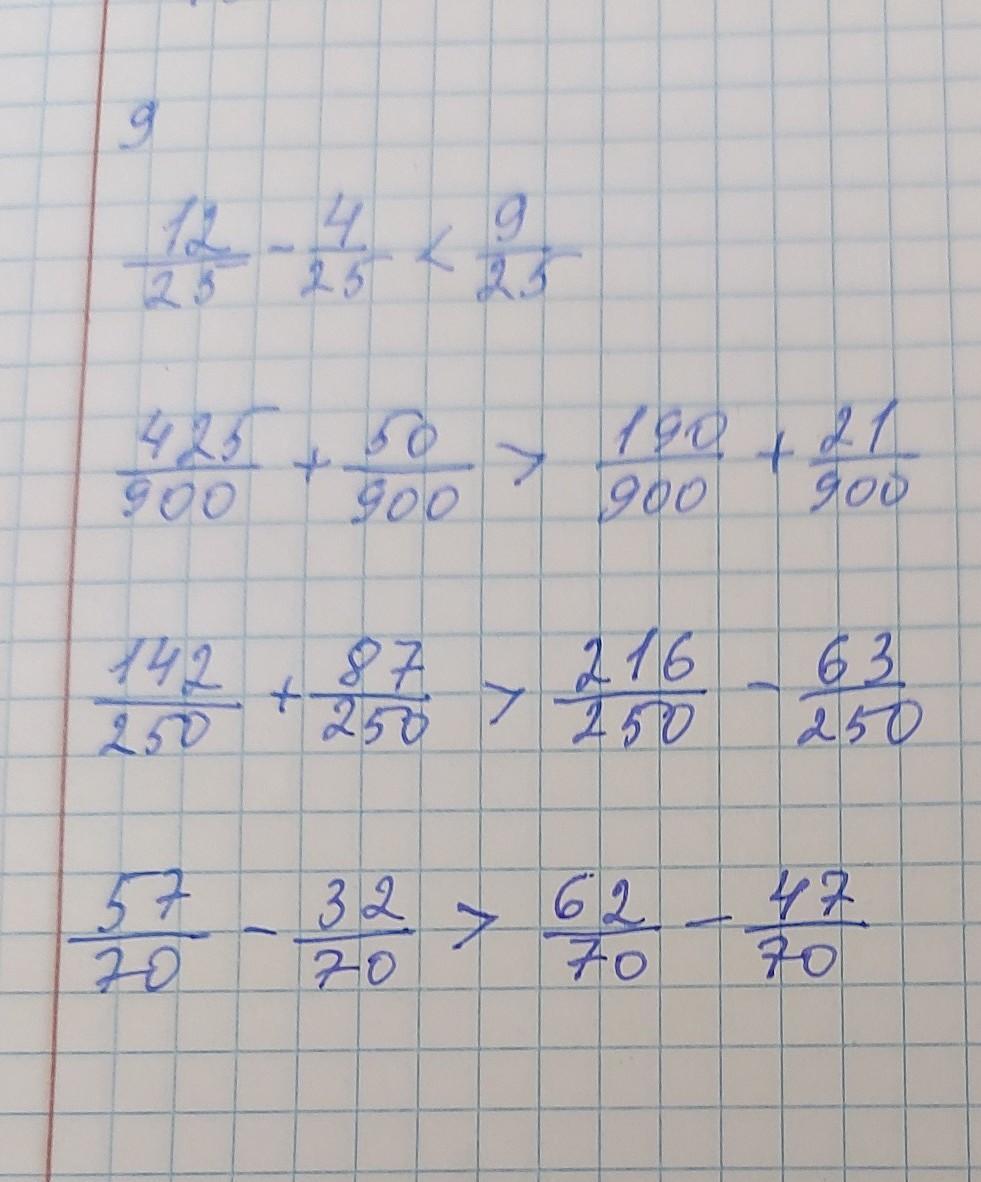 9
12/25 - 4/25 < 9/25
425/900 + 50/900 > 190/900 + 21/900
142/250 + 87/250 > 216/250 - 63/250
57/70 - 32/70 > 62/70 - 47/70